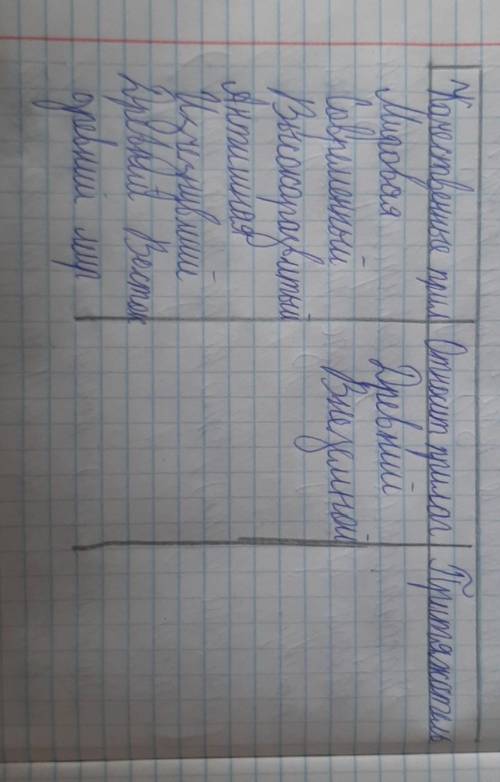 Качественные прил
Относит прилаг
Притяжатель
Мировая
Современный
Высокоразвитый
Античная
Изживший
Древний Восток
древний мир
Древний
Внеземной